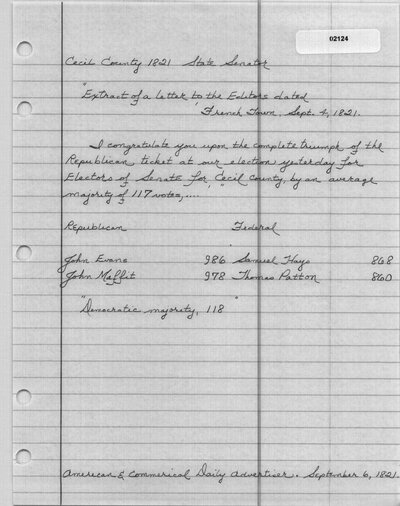 02124
Cecil County 1821 State Senator
"Extract of a letter to the Editors dated
French Town, Sept. 4, 1821.
I congratulate you upon the complete triumph of the
Republican ticket at our election yesterday for
Electors of Senate for Cecil County, by an average
majority of 117 votes,....
Republican Federal
John Evans 986 Samuel Hays 868
John Moffit 978 Thomas Patton 860
"Democratic majority, 118"
American & Commerical Daily Advertiser. September 6, 1821.